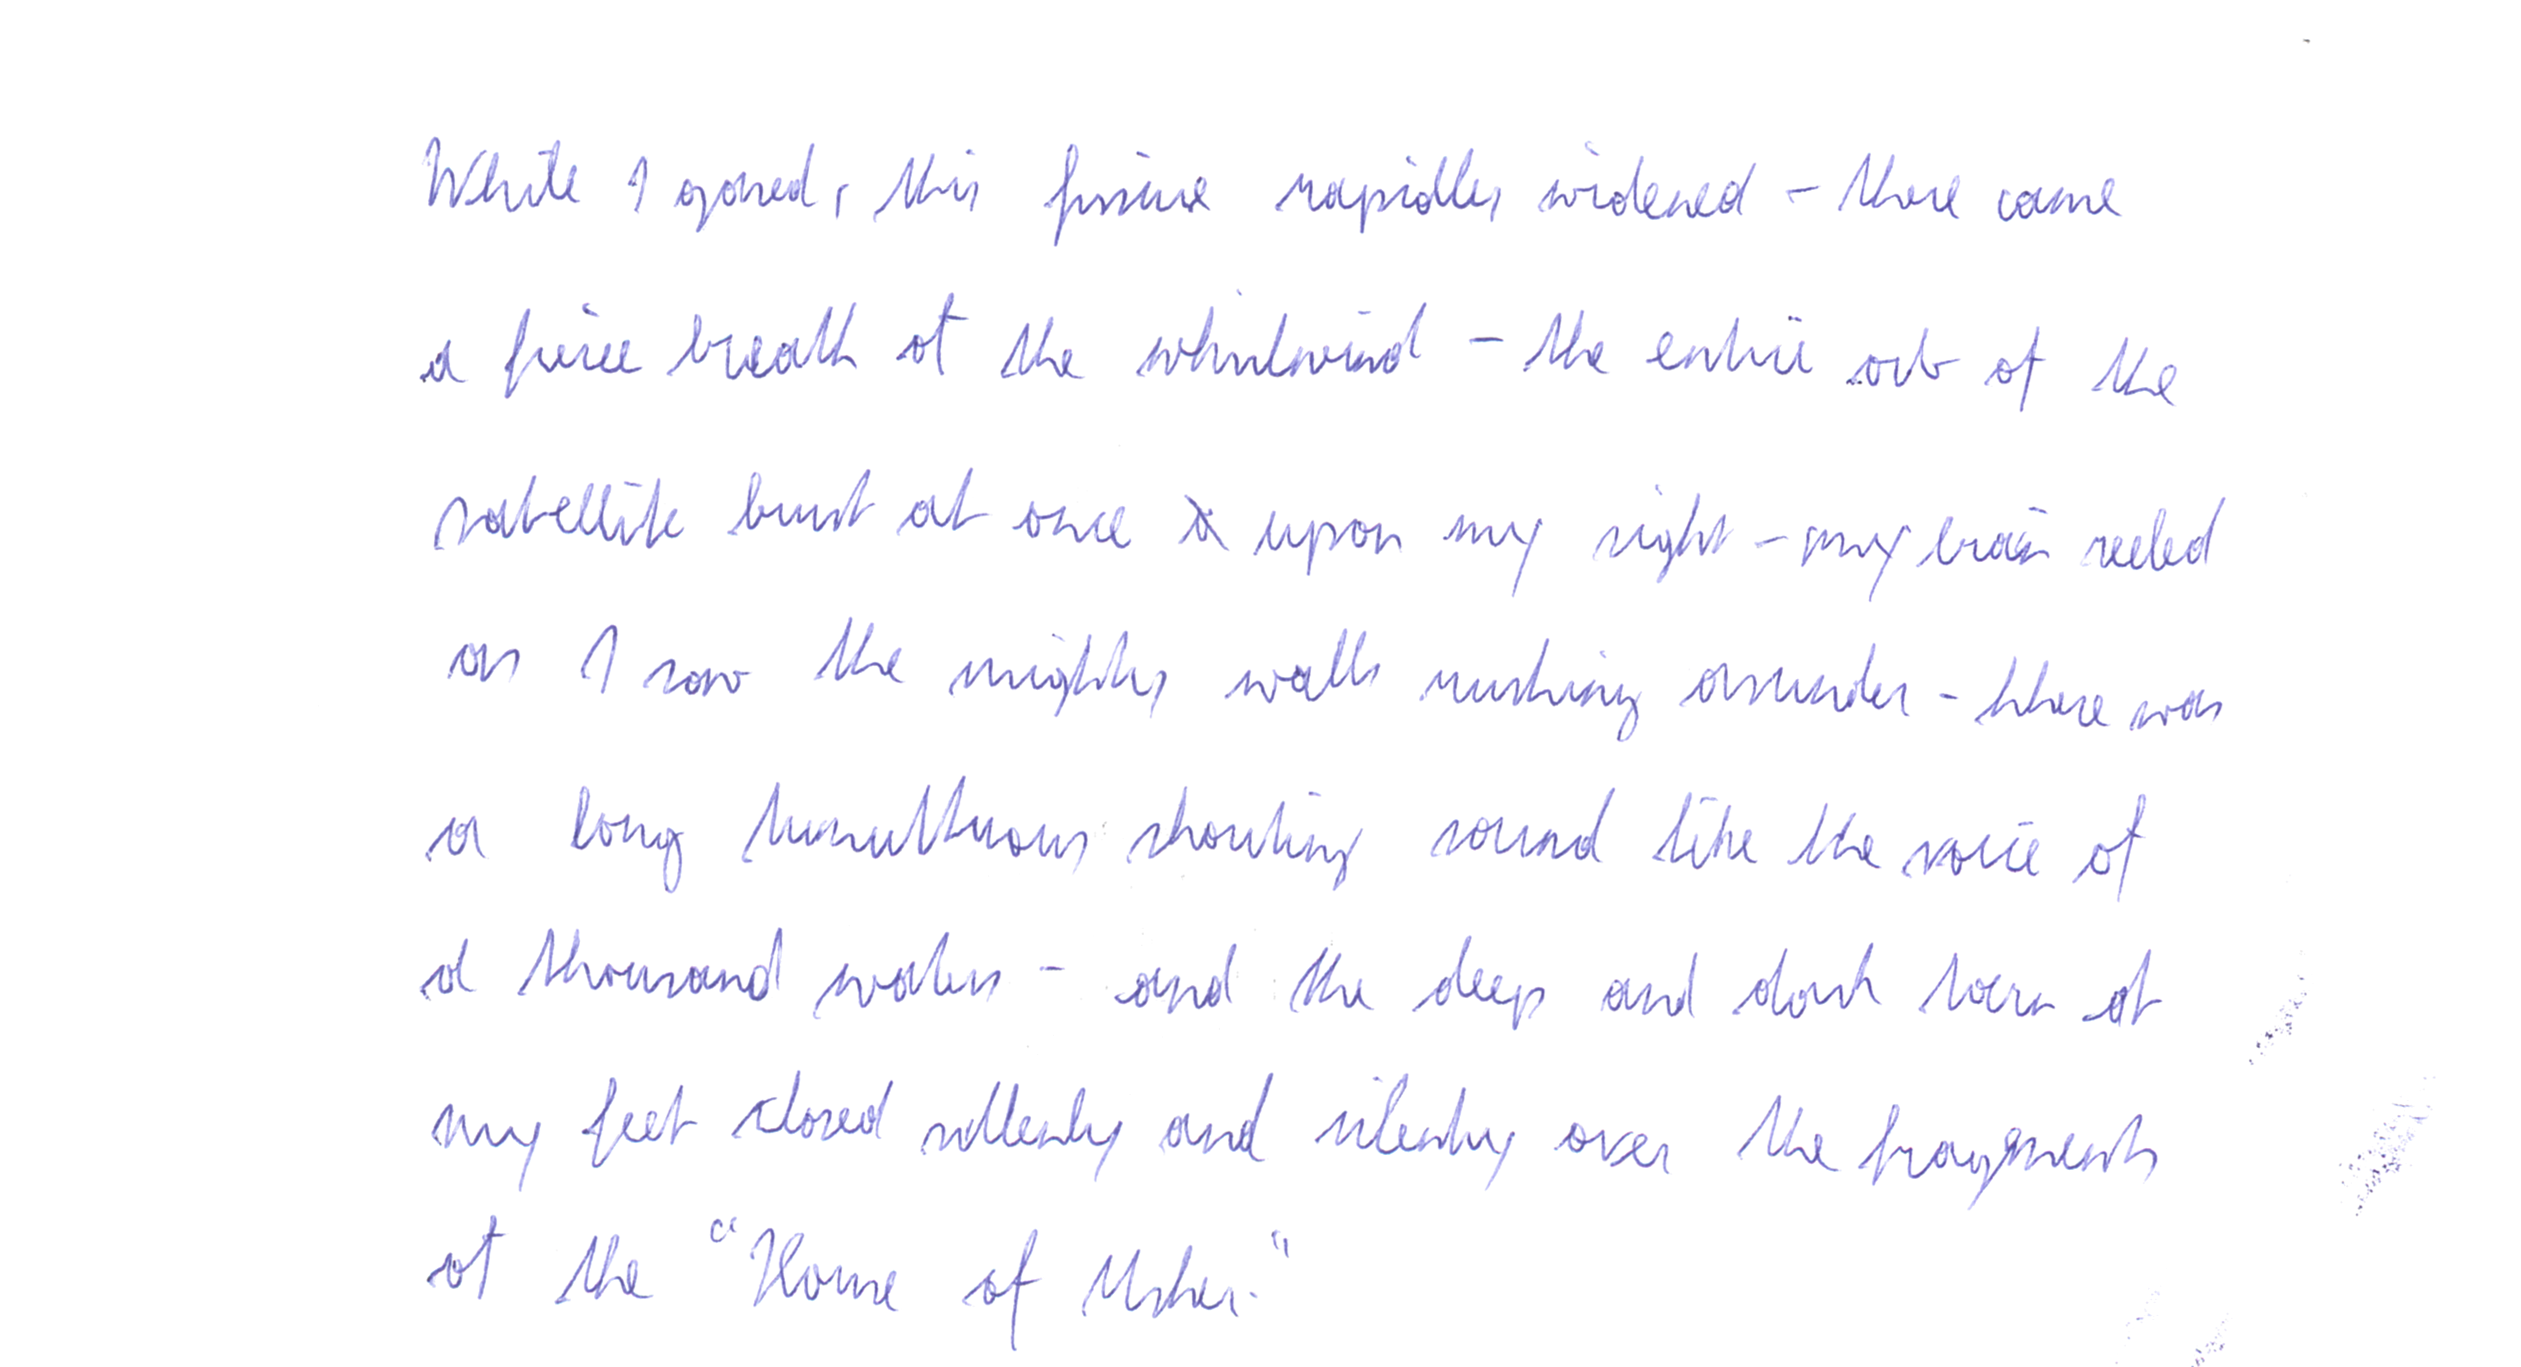 While I gazed, this fissure rapidly widened - there came
a fierce breath of the whirlwind - the entire orb of the
satellite burst at once upon my sight - my brain reeled
as I saw the mighty walls rushing asunder - there was
a long tumultuous shouting sound like the voice of
a thousand waters - and the deep and dark tarn at
my feet closed sullenly and silently over the fragments
of the "House of Usher."